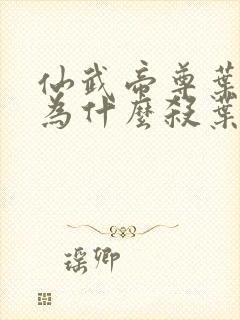 仙武帝尊葉
為什麼殺葉
瑶卿